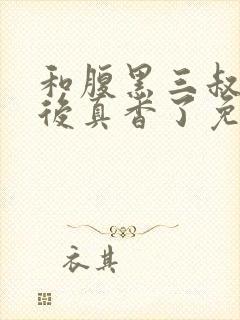 和腹黑三叔
後真香了免
衣其